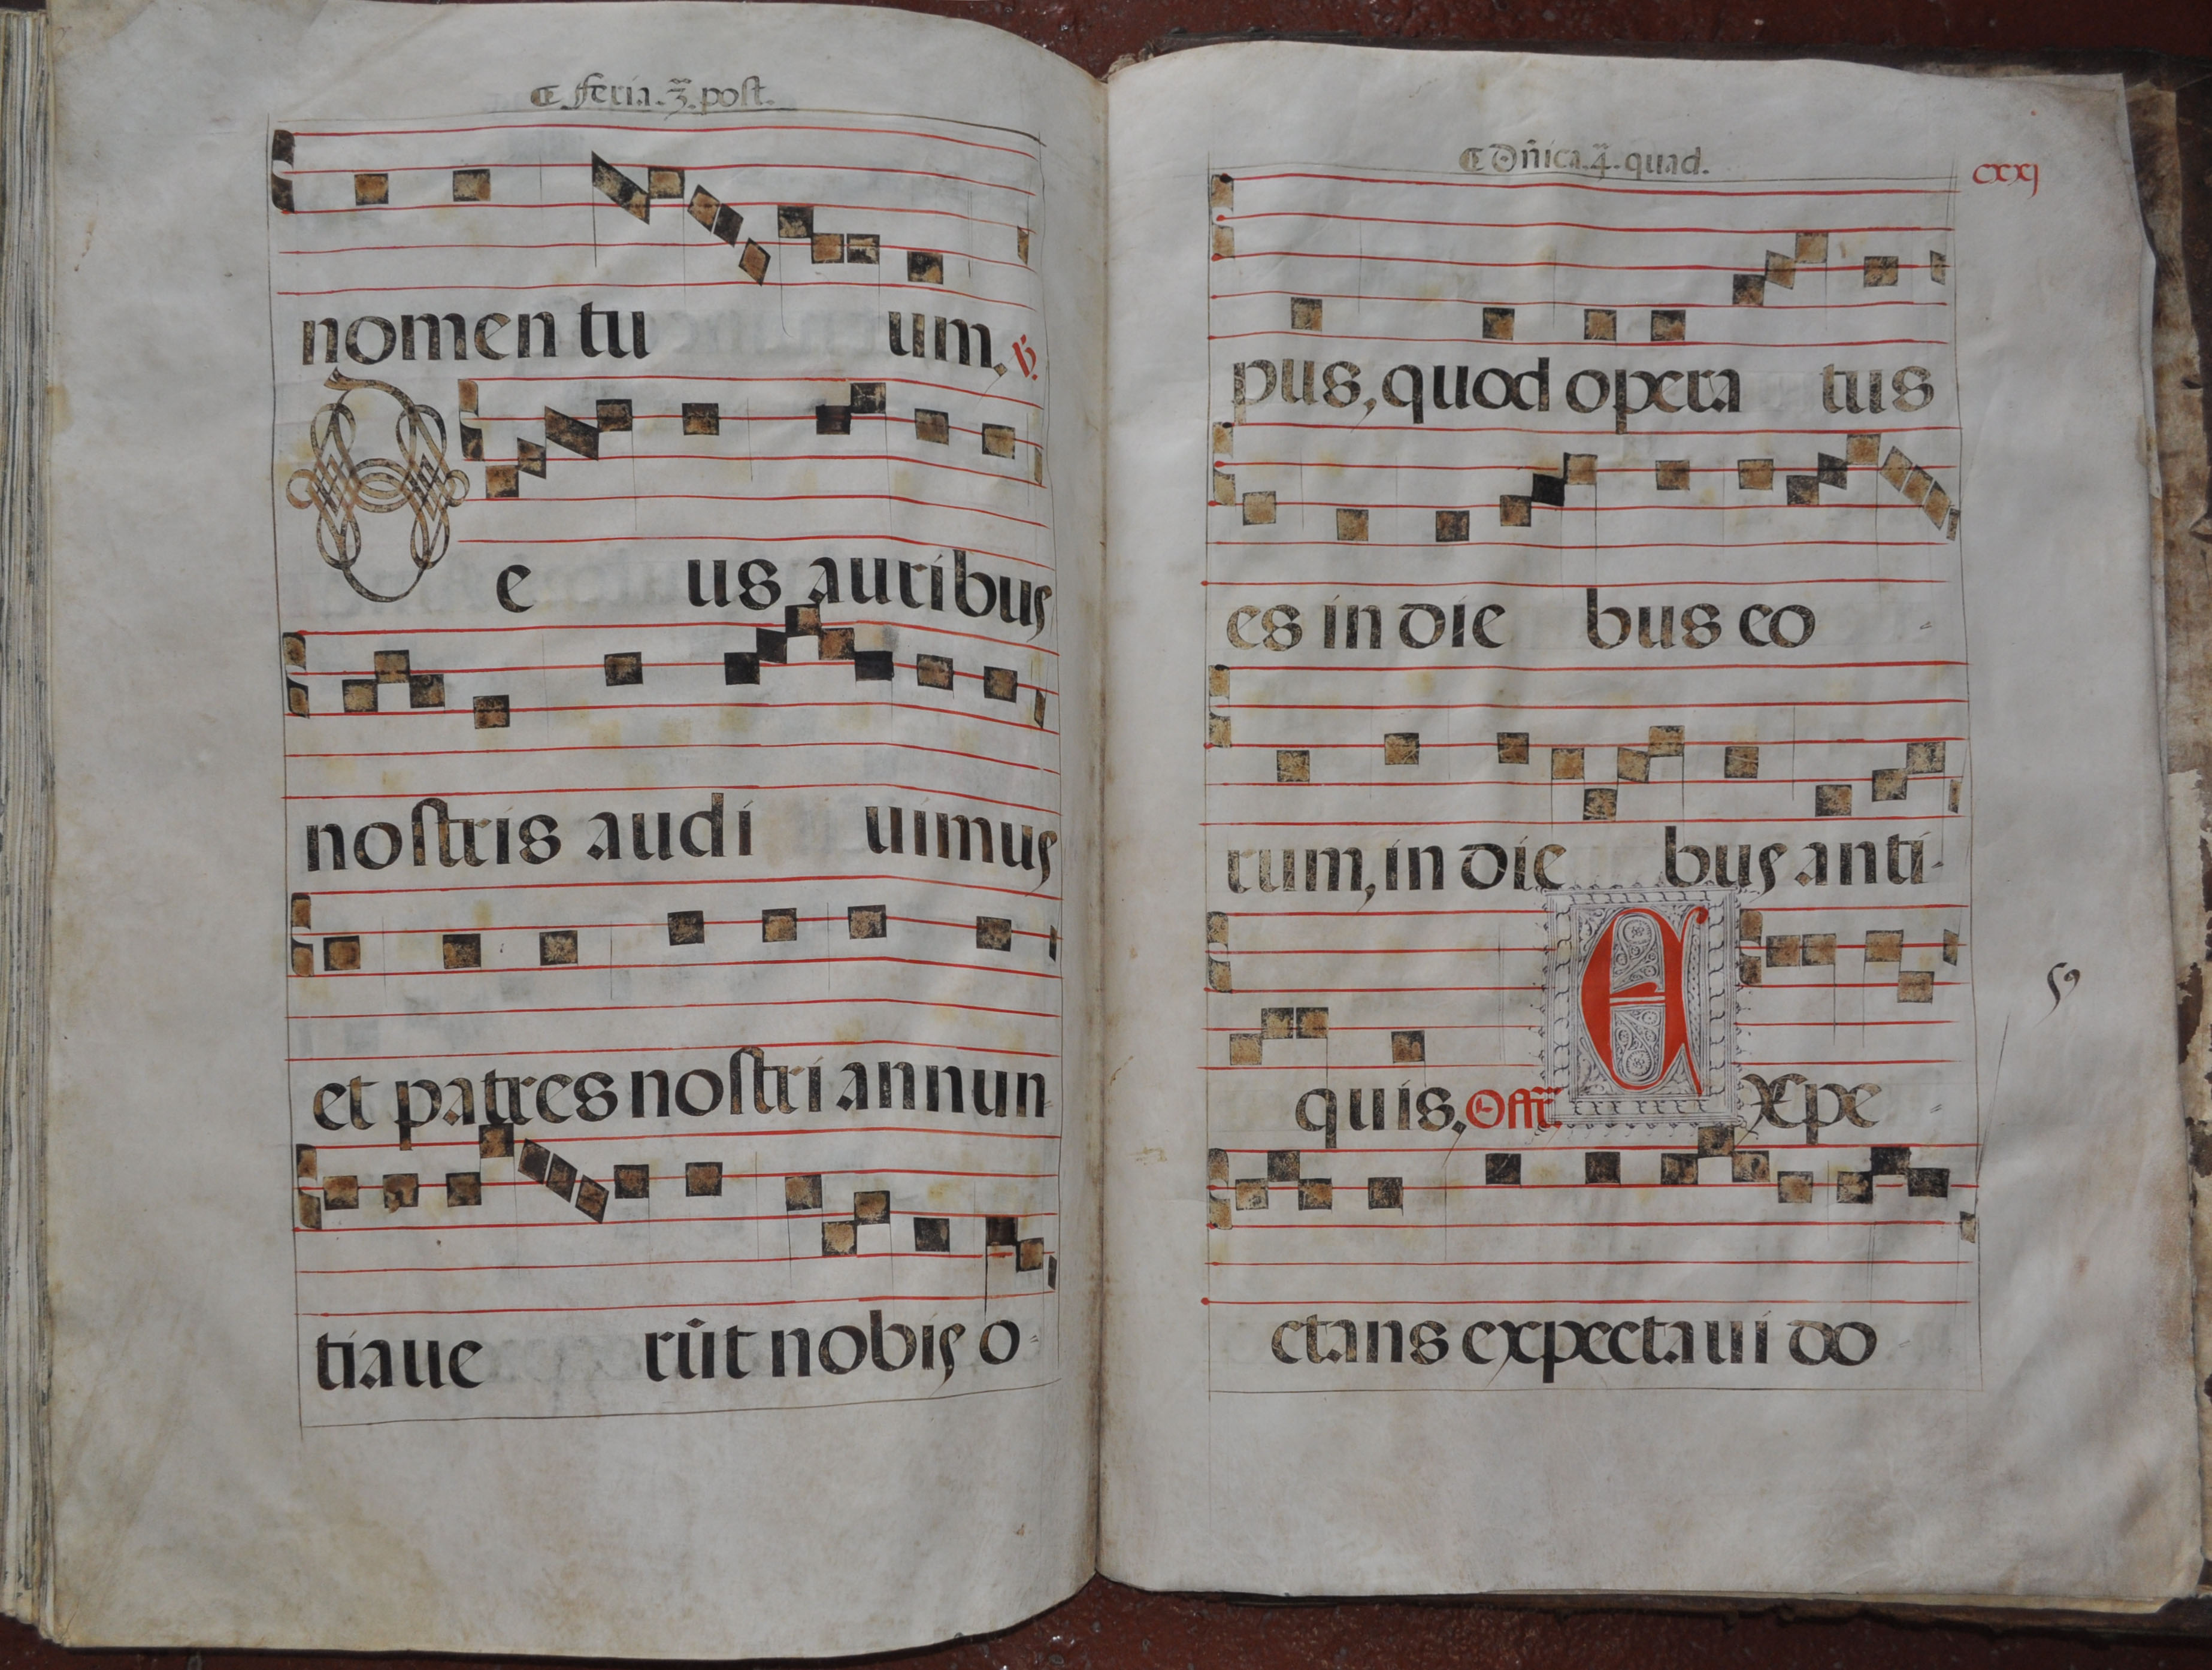 ⸿ feria. 3ª. post.
nomen tu um. ℣.
De us auribus
nostris audi uimus
et patres nostri annun
tiaue rūt nobis o-
⸿ Dn̄ica. 4ª. quad.
cxxj
pus, quod opera tus
es in die bus eo -
rum, in die bus anti-
quis. Offr̄. Expe -
ctans expectaui do -